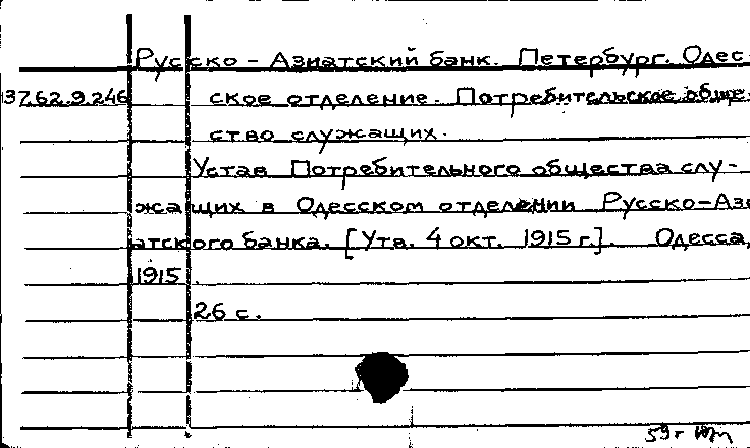 Русско-Азиатский банк. Петербург. Одес
37.62.9.246 ское отделение. Потребительское обще
ство служащих.
Устав Потребительного общества слу-
жащих в Одесском отделении Русско-Ази
атского банка. [Утв. 4 окт. 1915 г.]. Одесса,
1915.
26 с.
59 г